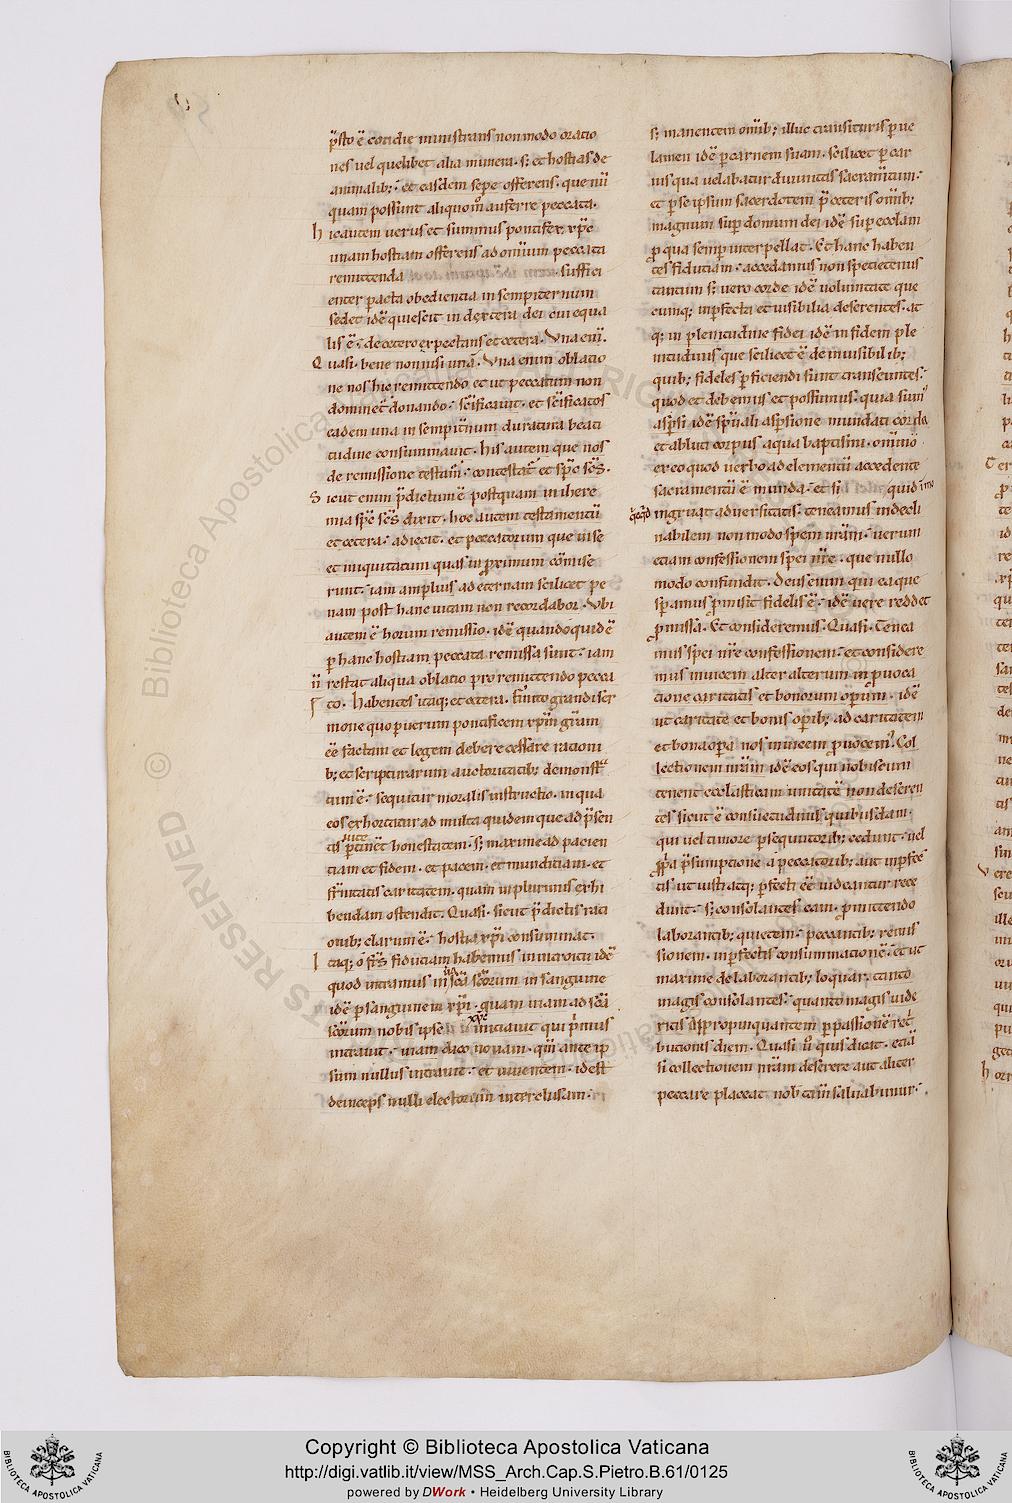 p̄sto ē cotidie ministrans non modo oratio
nes uel quelibet alia munera. s; et hostias de
animalib;: et easdem sepe offerens. que nū
quam possunt aliquom̊ auferre peccata.
hic autem uerus et summus pontifex xp̄c
unam hostiam offerens ad omnium peccata
remittenda suffici
enter peracta obediencia in sempiternum
sedet idē quiescit in dextera dei cui equa
lis ē: de cetero expectans et cetera. Vna enī.
Quasi. bene non nisi unā. Vna enim oblatio
ne nos hic remittendo et ut peccatum non
dominet̄ donando: sc̄ificauit. et sc̄ificatos
eadem una in sempit̄num duratura beati
tudine consummauit. his autem que nos
de remissione testam̄: contestat̄ et sp̄c sc̄s.
Sicut enim p̄dictum ē postquam in ihere
mia sp̄c sc̄s dixit. hoc autem testamentū
et cetera: adiecit. et peccatorum que in se
et iniquitatum quas in proximum cōmise
runt: iam amplius ad eternam scilicet pe
nam post hanc uitam non recordabor. Vbi
autem ē horum remissio. idē quandoquidē
p hanc hostiam peccata remissa sunt: iam
n̄ restat aliqua oblatio pro remittendo pecca
to. habentes itaq; et cetera. finito grandi ser
mone quo p uerum pontificem xp̄m grām
eē factam et legem debere cessare rationi
b; et scripturarum auctoritatib; demonstra
tum ē: sequitur moralis instructio. in qua
eos exhortatur ad multa quidem que ad p̄sen
tis uite ptinēt honestatem. s; maxime ad pacien
tiam et fidem. et pacem. et mundiciam. et
frn̄itatis caritatem. quam in plurimis exhi
bendam ostendit. Quasi. sicut p̄dictis rati
onib; clarum ē: hostia xp̄i consummat.
Itaq; ō frs̄ fiduciam habemus in introitu idē
quod intramus in sc̄a sc̄orum in sanguine
idē p sanguinem xp̄i. quam uiam ad sc̄a
sc̄orum nobis ipse xp̄c initiauit qui primus
intrauit: uiam dico nouam. qm̄ ante ip
sum nullus intrauit: et uiuentem. id est
deinceps nulli electorum interclusam.
s; manentem omib; illuc transituris p ue
lamen idē p carnem suam. scilicet p car
nis qua uelabatur diuinitas sacram̄tum:
et p se ipsum sacerdotem p̄ ceteris omib;
magnum sup domum dei idē sup eccl̄am
pro qua semp interpellat. Et hanc haben
tes fiduciam: accedamus non specietenus
tantum s; uero corde idē uoluntate que
cumq; inpfecta et uisibilia deserentes. at
q; in plenitudine fidei idē in fidem ple
nitudinis que scilicet ē de inuisibilib;
quib; fideles pficiendi sunt transeuntes:
quod et debemus et possumus. quia sum̄
aspsi idē sp̄uali aspsione mundati corda
et abluti corpus aqua baptismi. omino
ex eo quod uerbo ad elementū accedente
sacramentū ē munda: et si quid imo
quicquid ingruat aduersitatis: teneamus indecli
nabilem non modo spem nr̄am: uerum
etiam confessionem spei nr̄e. que nullo
modo confundit. Deus enim qui ea que
speramus promisit fidelis ē: idē uere reddet
promissa. Et consideremus. Quasi. Tenea
mus spei nr̄e confessionem: et considere
mus inuicem alter alterum in prouoca
tione caritatis et bonorum opum. idē
ut caritate et bonis opib; ad caritatem
et bona opa nos inuicem prouocem̄. Col
lectionem nr̄am idē eos qui nobiscum
tenent ecclasticam unitatē non deseren
tes sicut ē consuetudinis quibusdam.
qui uel timore psequutorib; cedunt: uel
propria p̄sumptione a peccatorib; aut inpfec
tis ut iusti atq; pfecti eē uideantur rece
dunt: s; consolantes eam. promittendo
laborantib; quietem: peccantib; remis
sionem. inpfectis consummationē. et ut
maxime de laborantib; loquar. tanto
magis consolantes: quanto magis uide
ritis appropinquantem p passionē ret̄
butionis diem. Quasi n̄ quis dicat. etiā
si collectionem nr̄am deserere aut aliter
peccare placeat nob tam̄ saluabimur:
Copyright © Biblioteca Apostolica Vaticana
http://digi.vatlib.it/view/MSS_Arch.Cap.S.Pietro.B.61/0125
powered by DWork • Heidelberg University Library